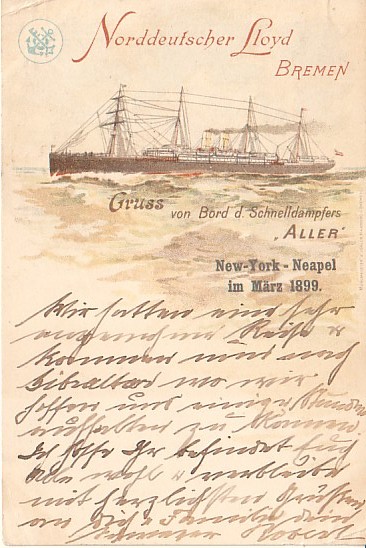 Norddeutscher Lloyd
BREMEN
Gruss von Bord d. Schnelldampfers
„ALLER“
New-York - Neapel
im März 1899.
Wir hatten eine sehr
angenehme Reise &
kommen nun nach
Gibraltar wo wir
hoffen uns einige Stunden
aufhalten zu können.
Ich hoffe Ihr befindet Euch
Alle wohl & verbleibe
mit herzlichsten Grüßen
an Dich & Familie dein
Robert